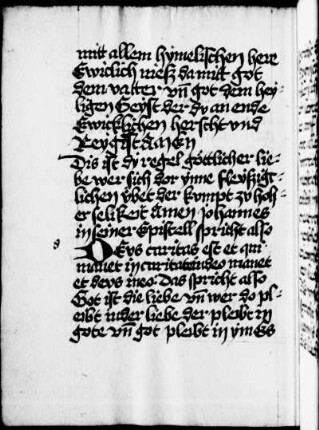 mitt allem hymelischen here
Ewiclich mesz da mitt got
dem vatter vn̄ got dem hey-
ligen Geyst der dv an ende
Ewicklichen herscht vnd
Reygist amen
Dis ist dy regel gottlicher lie-
be wer sich dor ynne fleyszigt-
lichen ybet der kvmpt zv hoh-
er selikeit amen Johannes
in seiner Epistell spricht also
Devs caritas est et qui
manet in caritate in deo manet
et devs in eo Das spricht also
Got ist die liebe vn̄ wer do pl-
eibt in der liebe der pleibt in
gote vn̄ got pleibt in ym Es